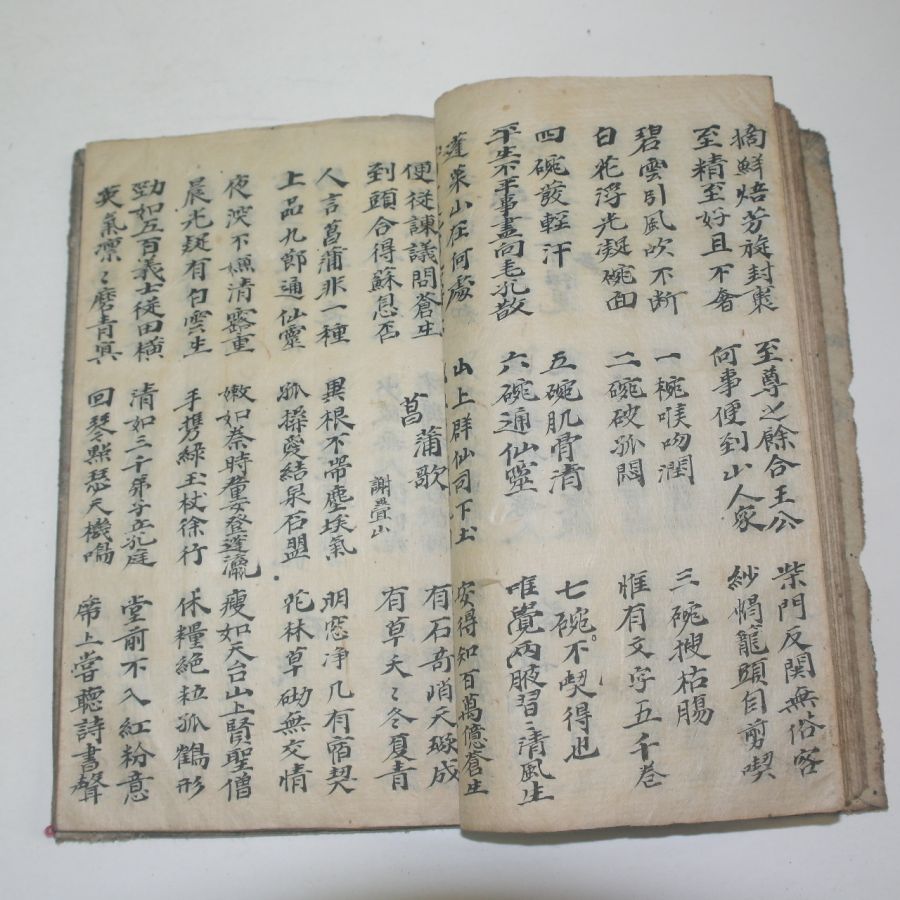 摘鮮焙芳旋封裹
至精至好且不奢
至尊之餘合王公
何事便到山人家
柴門反関無俗客
紗帽籠頭自剪喫
碧雲引風吹不断
白花浮光凝碗面
一椀喉吻潤
二碗破孤悶
三碗搜枯腸
惟有文字五千巻
四碗發輕汗
平生不平事盡向毛孔散
五碗肌骨清
六碗通仙靈
七碗不喫得也
唯覺兩腋習〻清風生
蓬萊山在何處
山上群仙司下土
安得知百萬億蒼生
便従諫議問蒼生
到頭合得蘇息否
菖蒲歌
謝疊山
有石奇峭天琢成
有草夭〻冬夏青
人言菖蒲非一種
上品九節通仙靈
異根不帶塵埃気
孤操愛結泉石盟
明窓净几有宿契
花林草砌無交情
夜深不嫌清露重
晨光疑有白雲生
嫩如秦時童女登蓬瀛
手携綠玉杖徐行
瘦如天台山上賢聖僧
休糧絶粒孤鶴形
勁如五百義士従田橫
英氣凛〻磨青冥
清如三千弟子立孔庭
回琴點瑟天機鳴
堂前不入紅粉意
席上嘗聽詩書聲